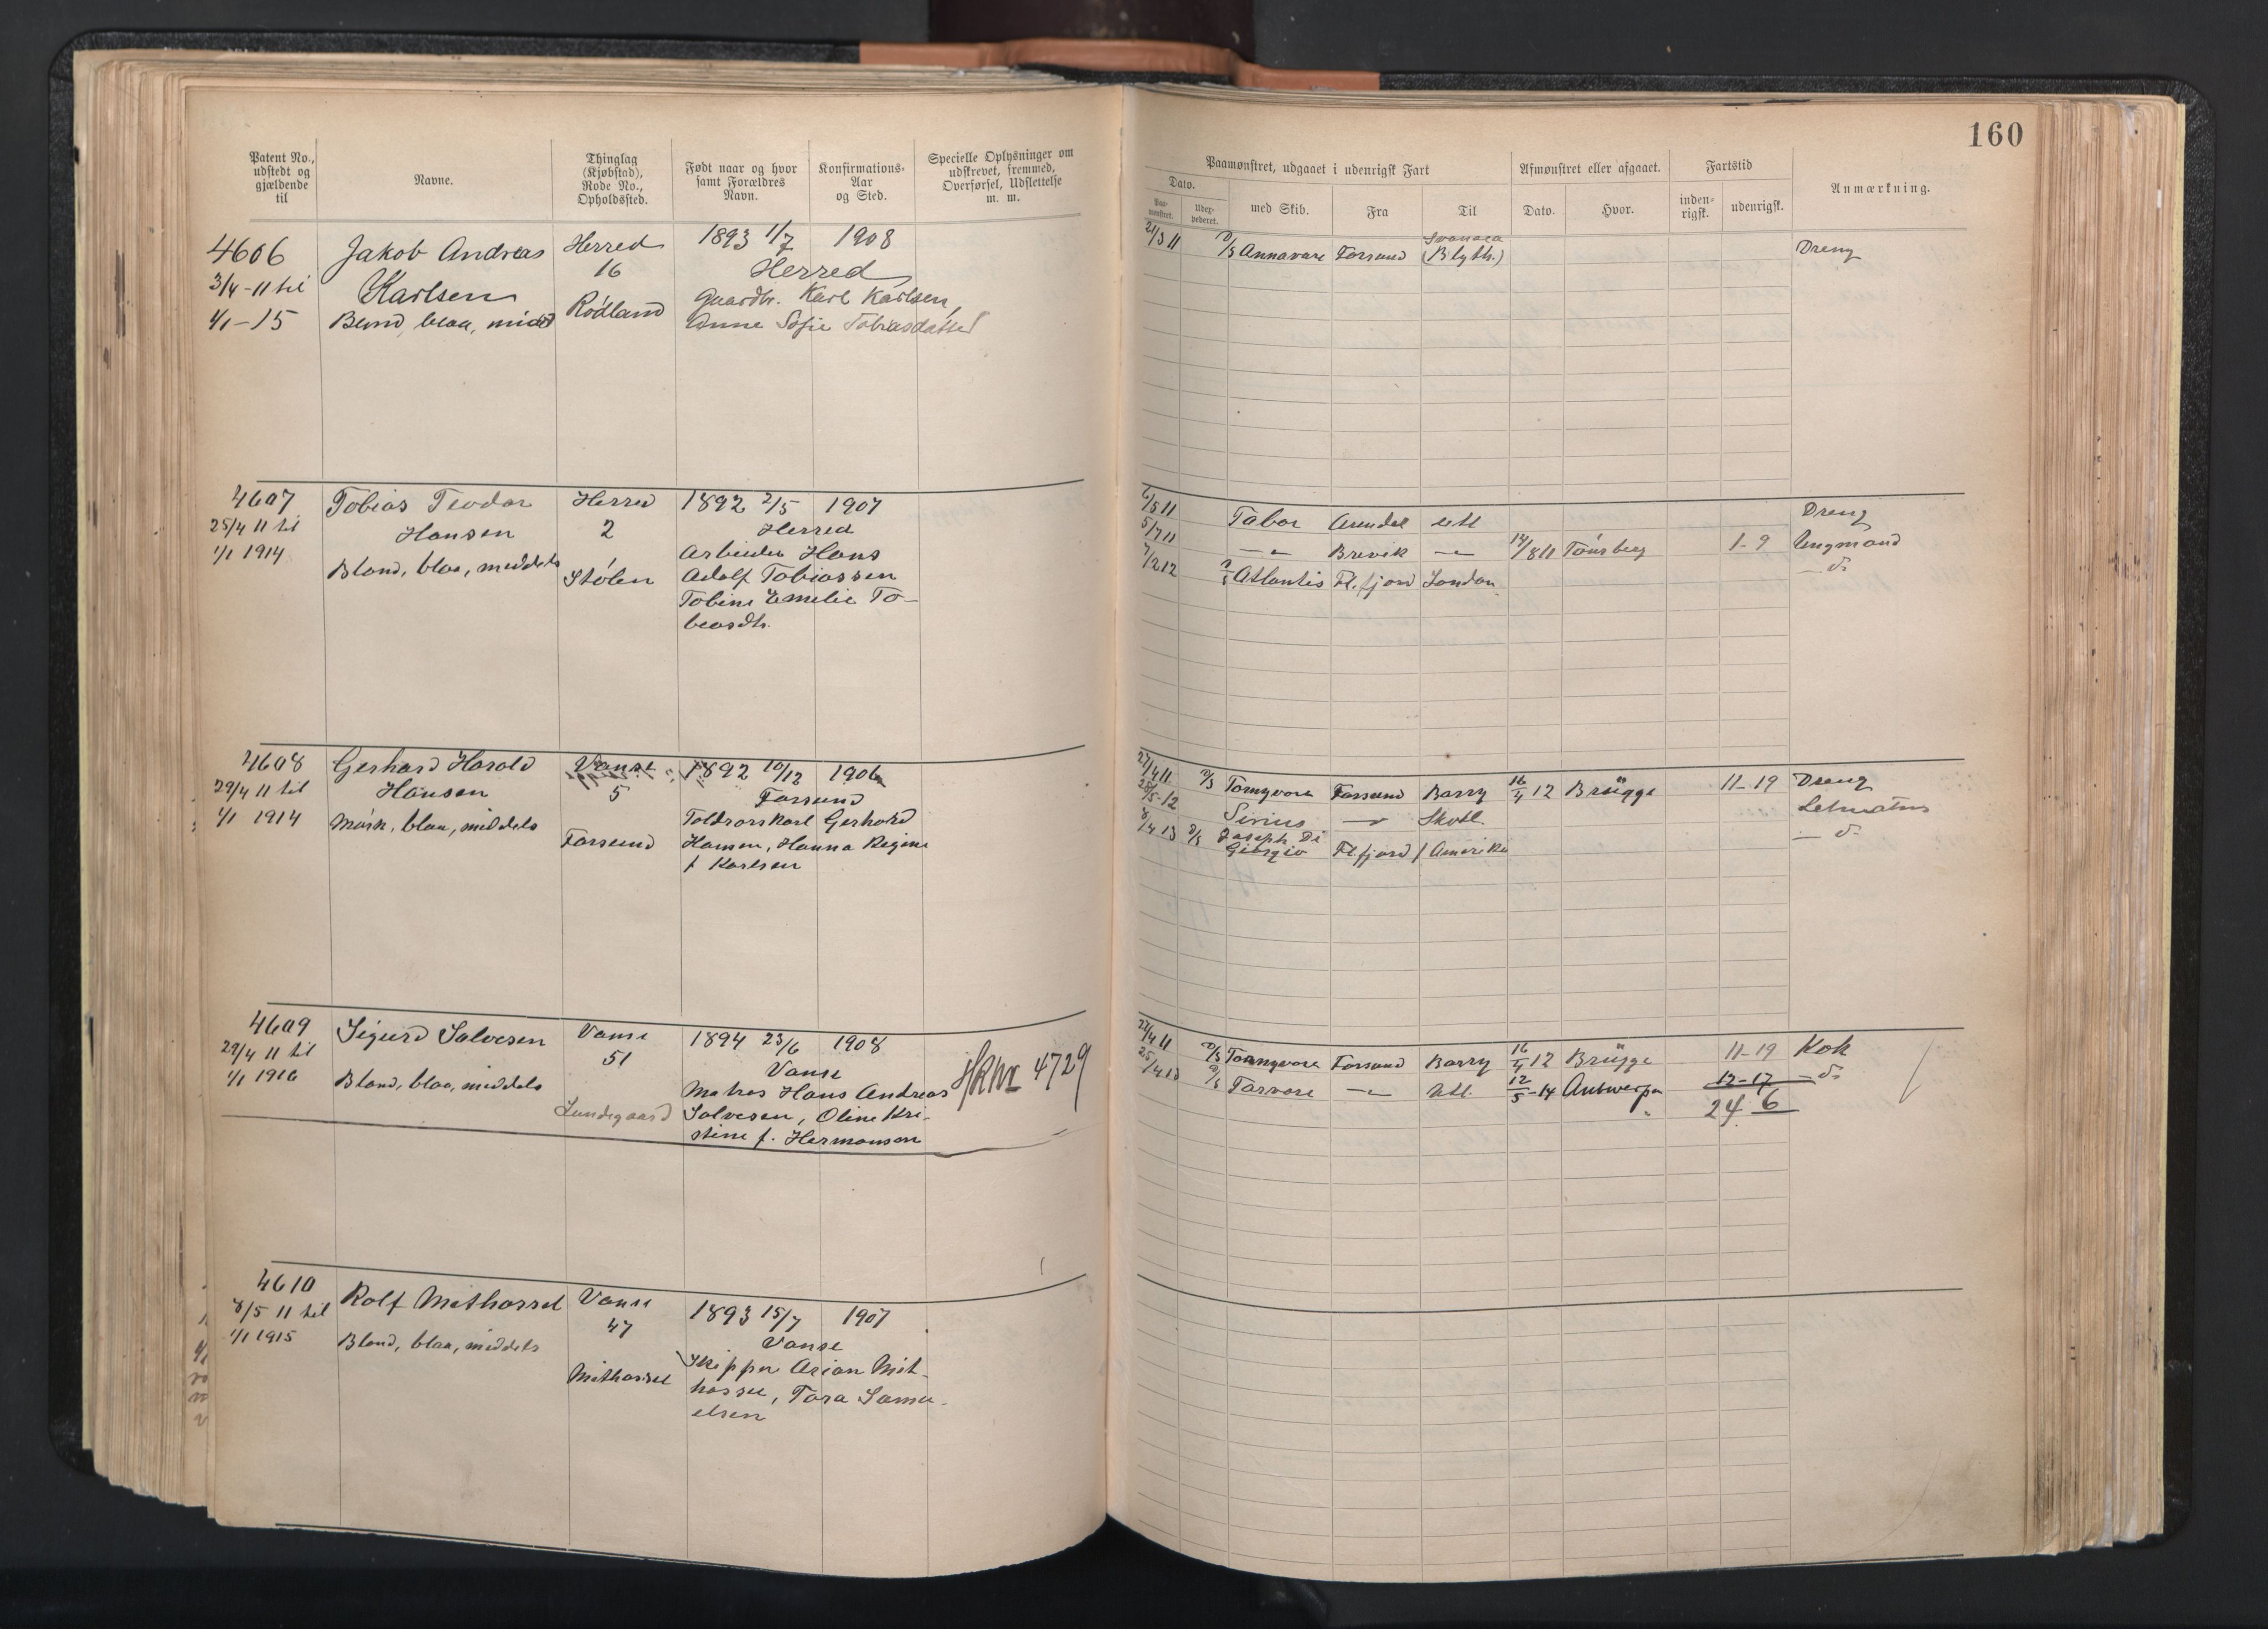 160
Patent No., udstedt og gjældende til
Navne.
Thinglag (Kjøbstad), Rode No., Opholdssted.
Født naar og hvor samt Forældres Navn.
Konfirmations-Aar og Sted.
Specielle Oplysninger om udskrevet, fremmed, Overførsel, Udslettelse m. m.
Paamønstret, udgaaet i udenrigsk Fart
Dato.
Paa-mønstret.
Udex-pederet.
med Skib.
Fra
Til
Afmønstret eller afgaaet.
Dato.
Hvor.
Fartstid
inden-rigsk.
udenrigsk.
Anmærkning.
4606 Jakob Andreas Herred 1893 1/7 1908
3/4-11 til Karlsen 16 Herred
1/1-15 Blond, blaa, midd Rødland Gaardbr. Karl Karlsen,
Anne Sofie Tobiasdatter
21/3 11 Annavore Farsund Svansea (Blyth.) Dreng
4607 Tobias Teodor Herred 1892 2/5 1907
25/4 11 til Hansen 2 Herred
1/1 1914 Blond, blaa, middels Stølen Arbeider Hans
Adolf Tobiassen
Tobine Emelie To-
beasdtr.
6/5 11 Tabor Arendal utl Dreng
5/7 11 Brevik 14/8 11 Tønsberg 1-9 Ungmand
7/2 12 Atlantis Fl.fjord London d.
4608 Gerhard Harald Vanse 1892 10/12 1906
29/4 11 til Hansen 5 Farsund
1/1 1914 Mørk, blaa, middels Farsund Toldrorskarl Gerhard
Hansen, Hanna Regine
f Karlsen
27/4 11 Tomgvore Farsund Barry 16/4 12 Brügge 11-19 Dreng
28/5-12 Sirius Skotl. Letmatros
8/4 13 Joseph Di Giorgio Fl.fjord f Amerika d.
4609 Sigurd Salvesen Vanse 1894 23/6 1908
29/4 11 til 51 Vanse
1/1 1916 Blond, blaa, middels Lundegaard Matros Hans Andreas
Salvesen, Oline Kri-
stine f. Hermansen
4729
27/4 11 Farsund Barry 16/4 12 Brügge 11-19 Kok
25/4 13 Farvore utl. 12/5-14 Antwerpen 12-17 d.
24 6
4610 Rolf Mithassel Vanse 1893 15/7 1907
8/5 11 til 47 Vanse
1/1 1915 Blond, blaa, middels Mithassel Skipper Arian Mit-
hassel, Tora Samu-
elsen